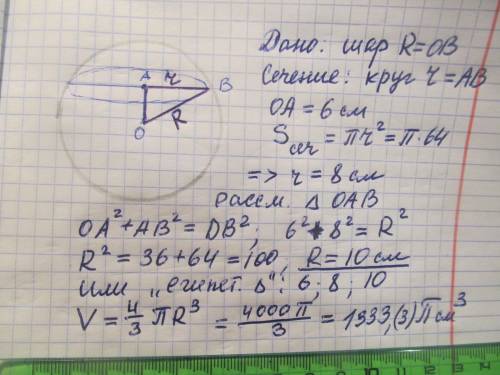 Дано: шар R=OB
Сечение: круг r=AB
OA = 6 см
Sсеч = πr² = π·64
=> r = 8 см
рассм. Δ OAB
A r B
O R
OA² + AB² = DB²; 6² + 8² = R²
R² = 36 + 64 = 100, R = 10 см
Или „египет. Δ": 6; 8; 10
V = 4/3 πR³ = 4000π/3 = 1333,(3) π см³